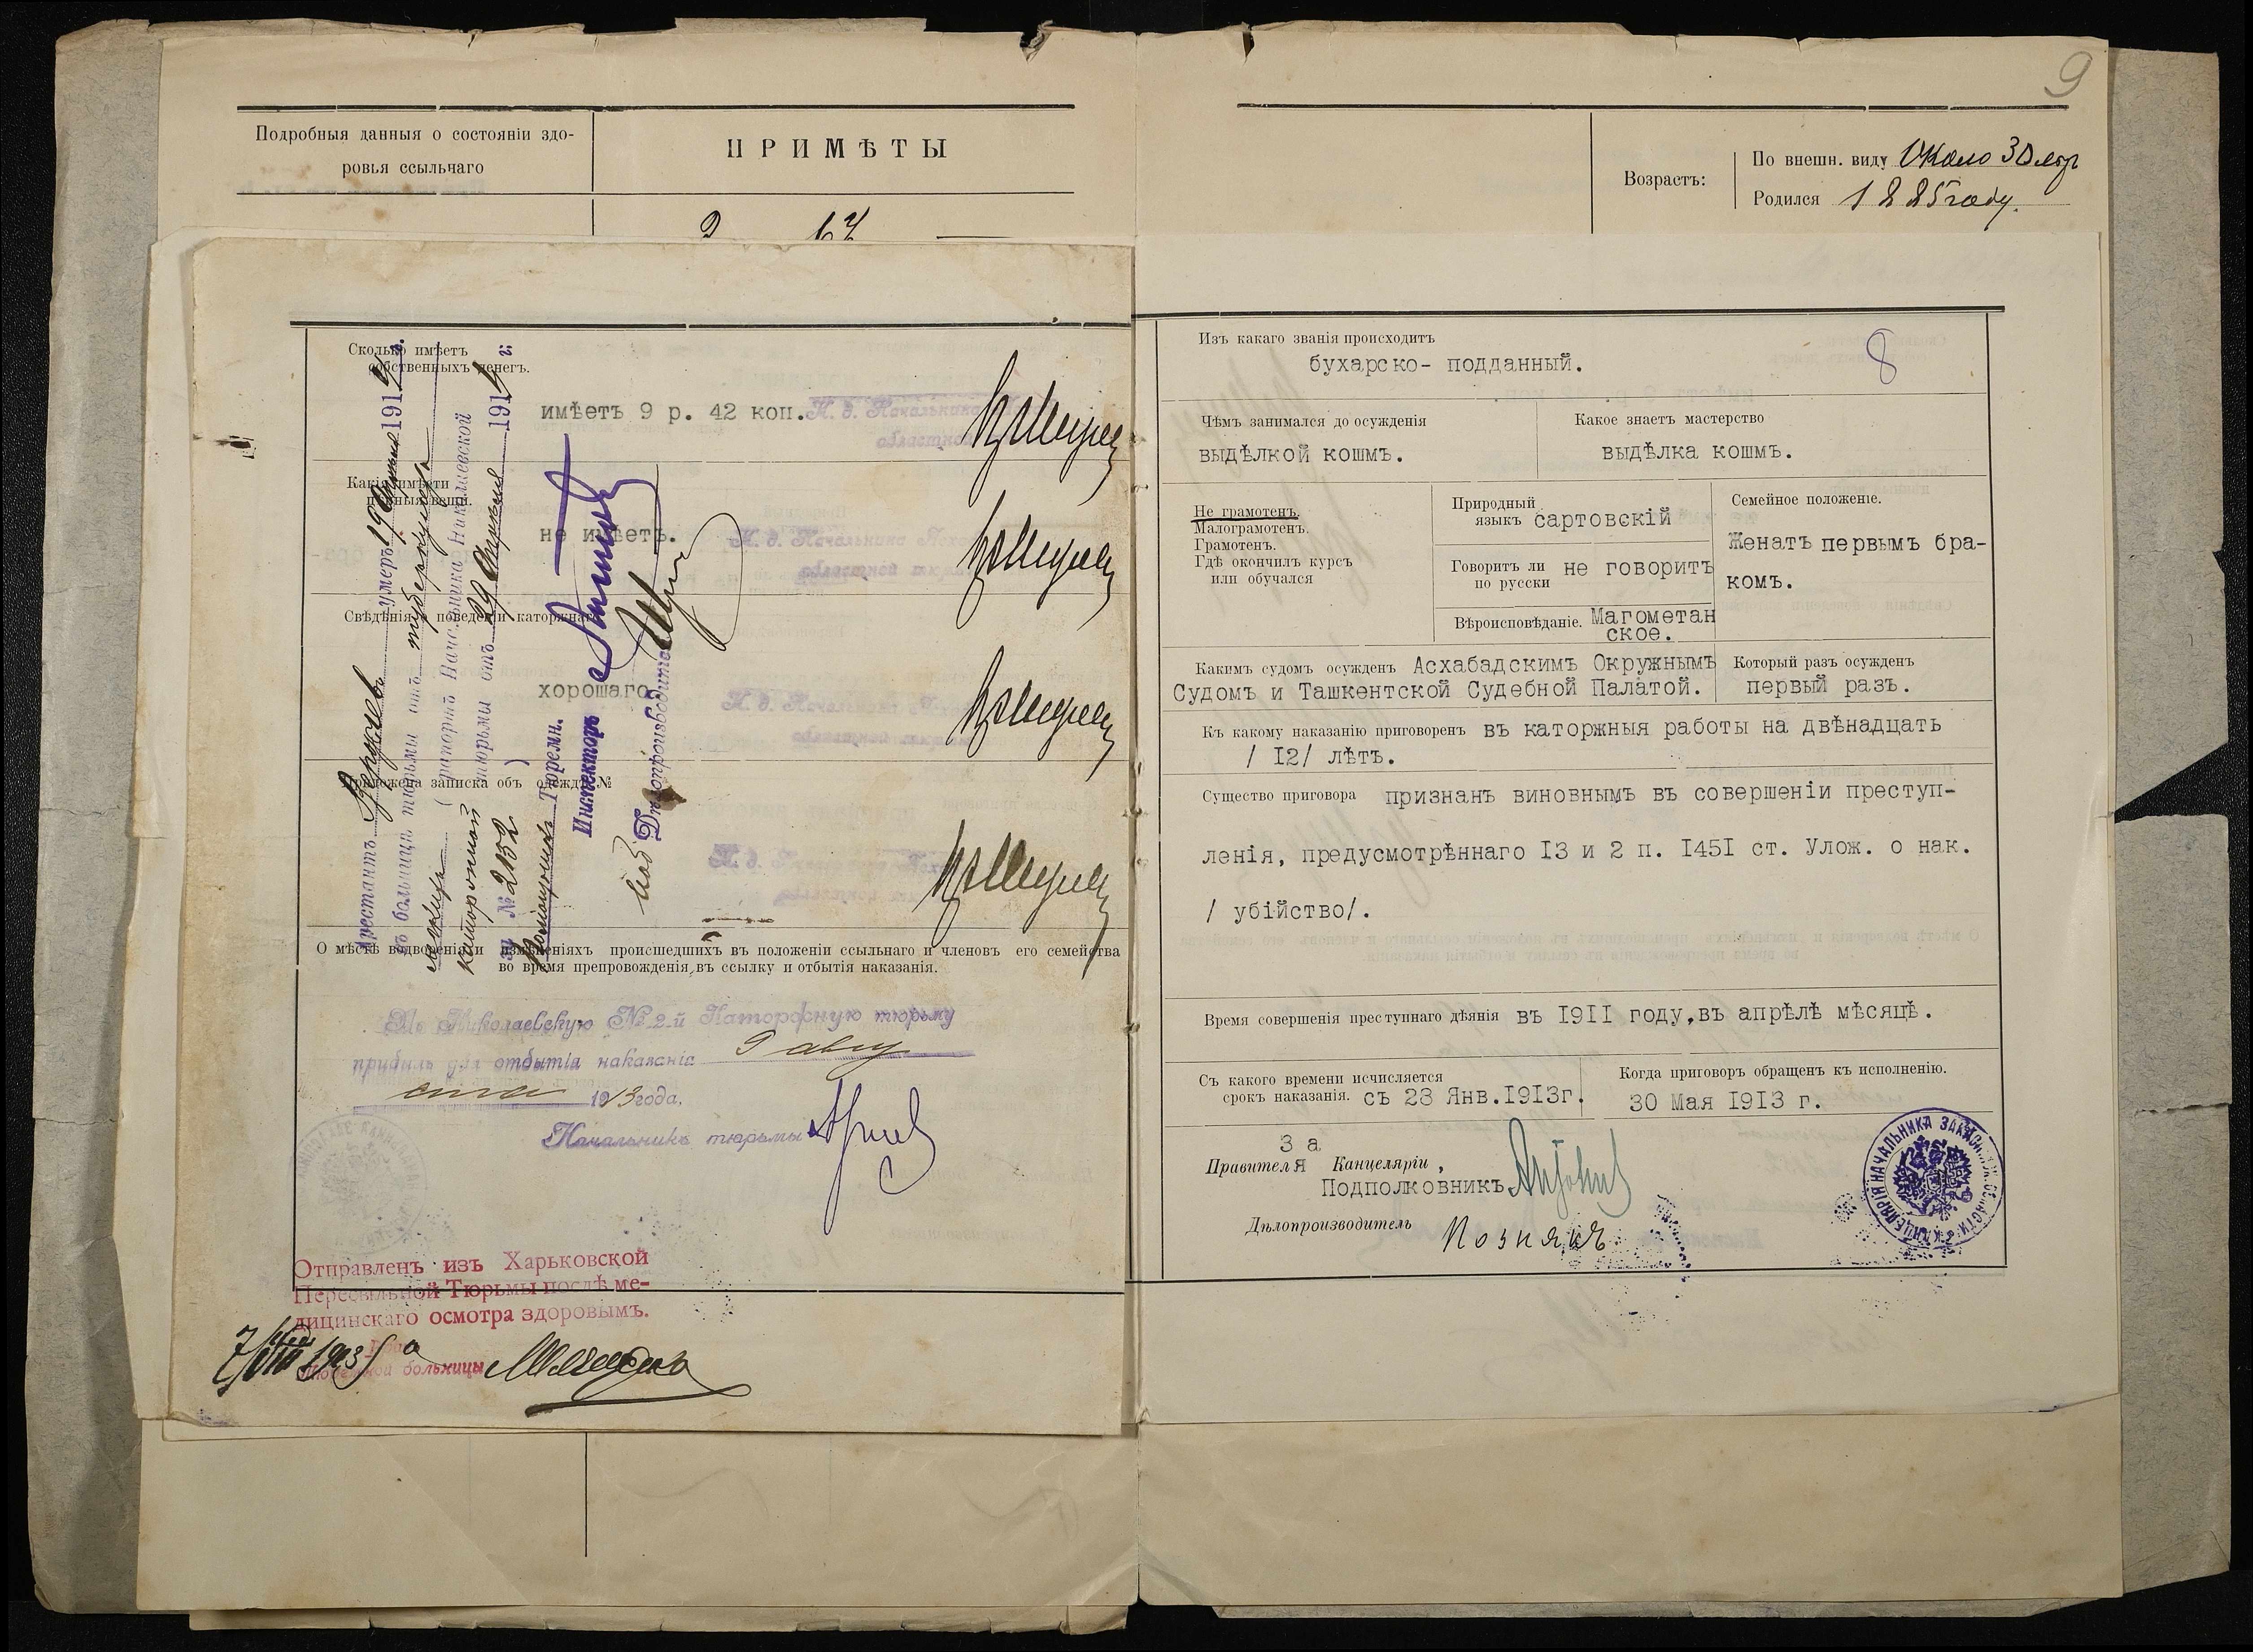 9
Подробныя данныя о состоянiи здо-
ровья ссыльнаго
ПРИМѢТЫ
Возрастъ:
По внешн. виду Около 30 лѣтъ
Родился 1885 году.
Сколько имѣетъ
собственныхъ денегъ.
имѣетъ 9 р. 42 коп.
И. д. Начальника
областной
Какiя имѣетъ
цѣнныя вещи.
не имѣетъ.
И. д. Начальника Асхо
областной тюрьмы
Свѣдѣнiя о поведенiи каторжнаго
хорошаго
И. д. Начальника
областной тюрьмы
Приложена записка объ одеждѣ №
И. д. Начальника
Арестантъ умеръ 19 Апрѣля 1914 г.
въ больницѣ тюрьмы отъ туберкулеза
легкихъ (рапортъ Начальника Николаевской
каторжной тюрьмы отъ 29 Апрѣля 1914 г.
за № 2152)
Помощникъ Тюремн.
Инспектора
Дѣлопроизводитель
О мѣстѣ водворенiя и измѣненiяхъ происшедшихъ въ положенiи ссыльнаго и членовъ его семейства
во время препровожденiя въ ссылку и отбытiя наказанiя.
Въ Николаевскую № 2-й Каторжную тюрьму
прибылъ для отбытiя наказанiя 9 авгу
ста 1913 года.
Начальникъ тюрьмы
Отправленъ изъ Харьковской
Пересыльной Тюрьмы послѣ ме-
дицинскаго осмотра здоровымъ.
7/VIII 1913
тюремной больницы
8
Изъ какаго званiя происходитъ
бухарско- подданный.
Чѣмъ занимался до осужденiя
выдѣлкой кошмъ.
Какое знаетъ мастерство
выдѣлка кошмъ.
Не грамотенъ.
Малограмотенъ.
Грамотенъ.
Гдѣ окончилъ курсъ
или обучался
Природный
языкъ сартовскiй
Говоритъ ли
по русски не говоритъ
Вѣроисповѣданiе. Магометан
ское.
Семейное положенiе.
Женатъ первымъ бра-
комъ.
Какимъ судомъ осужденъ Асхабадскимъ Окружнымъ
Судомъ и Ташкентской Судебной Палатой.
Который разъ осужденъ
первый разъ.
Къ какому наказанiю приговоренъ въ каторжныя работы на двѣнадцать
/ I2/ лѣтъ.
Существо приговора признанъ виновнымъ въ совершенiи преступ-
ленiя, предусмотрѣннаго I3 и 2 п. I45I ст. Улож. о нак.
/ убiйство/.
Время совершенiя преступнаго дѣянiя въ I9II году, въ апрѣлѣ мѣсяцѣ.
Съ какого времени исчисляется
срокъ наказанiя. съ 28 Янв. I9I3г.
Когда приговоръ обращенъ къ исполненiю.
30 Мая I9I3 г.
За
Правителя Канцелярiи,
Подполковникъ
Дѣлопроизводитель Познякъ
КАНЦЕЛЯРIЯ НАЧАЛЬНИКА ЗАКАСПIЙСК. ОБЛАСТИ